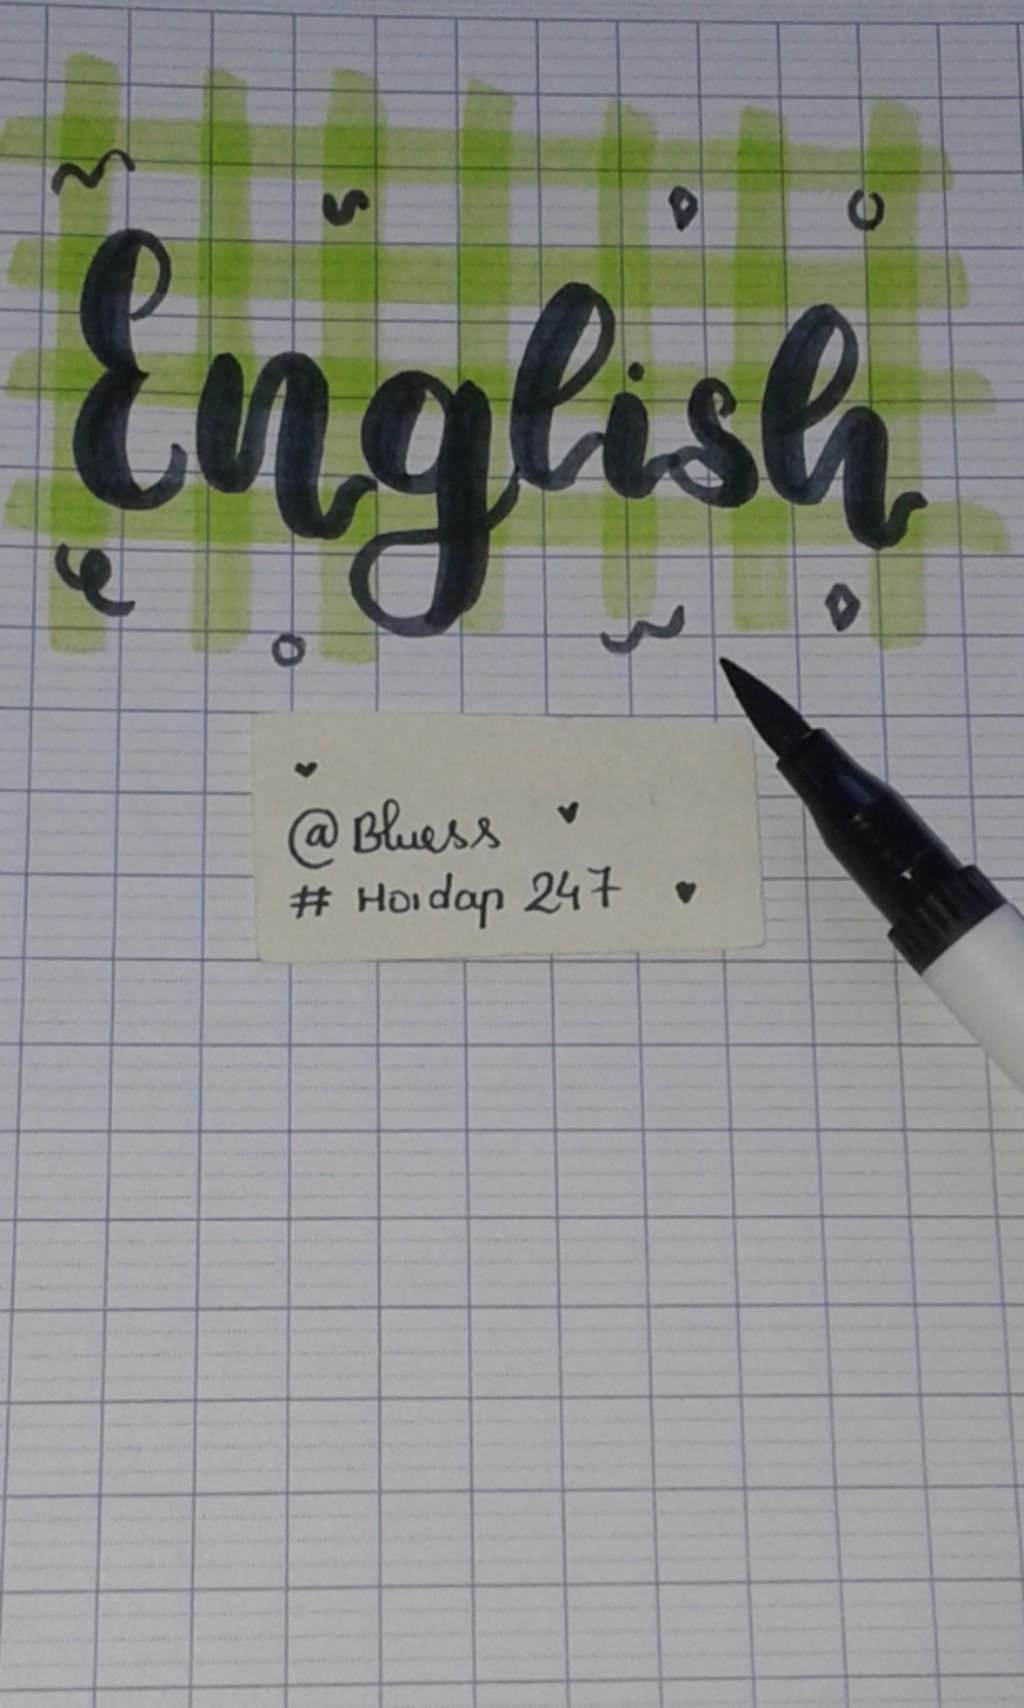 English
@Bluess
# Hoidap 247